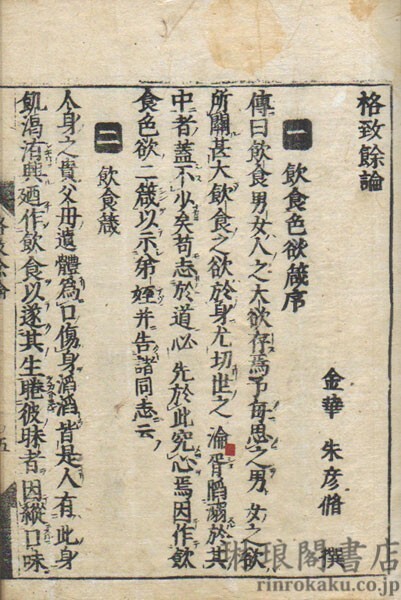 格致餘論
金華 朱彦脩 撰
一 飲食色欲箴序
傳曰飲食男女人之大欲存焉予每思之男女之欲
所關甚大飲食之欲於身尤切世之淪胥陷溺於其
中者蓋不少矣苟志於道必先於此究心焉因作飲
食色欲二箴以示弟姪并告諸同志云
二 飲食箴
人身之貴父母遺體為口傷身滔滔皆是人有此身
飢渴洊興廼作飲食以遂其生睠彼昧者因縱口味
琳琅閣書店
rinrokaku.co.jp